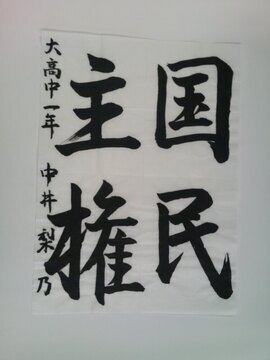 国民
主権
大高中一年 中井 梨乃